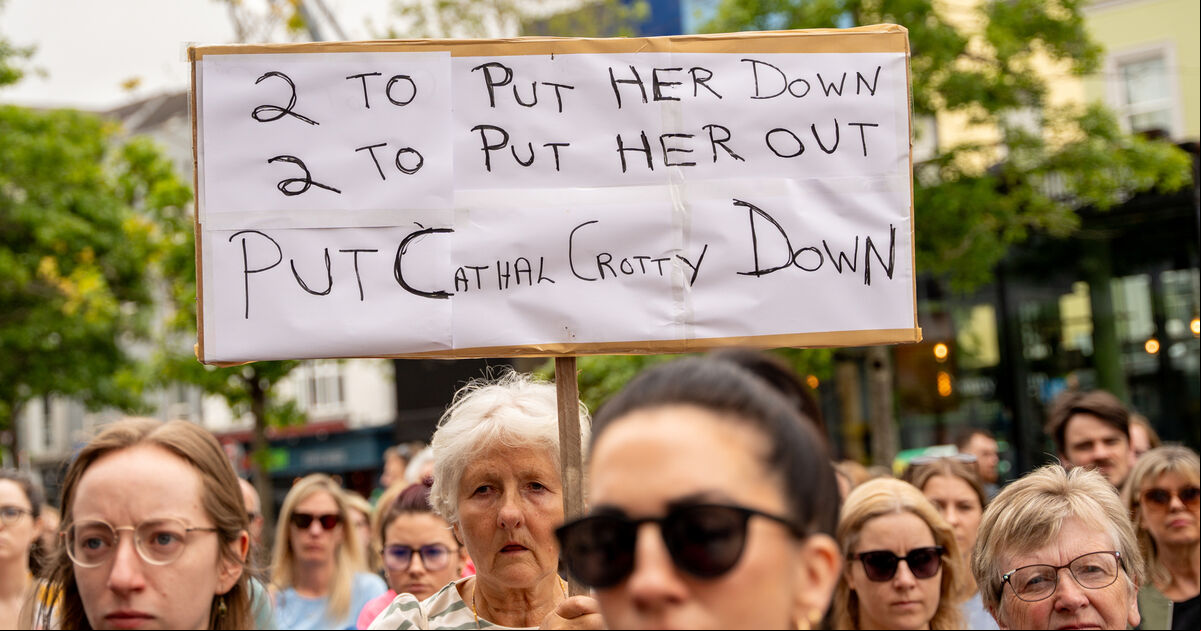 2 TO PUT HER DOWN
2 TO PUT HER OUT
PUT CATHAL CROTTY DOWN